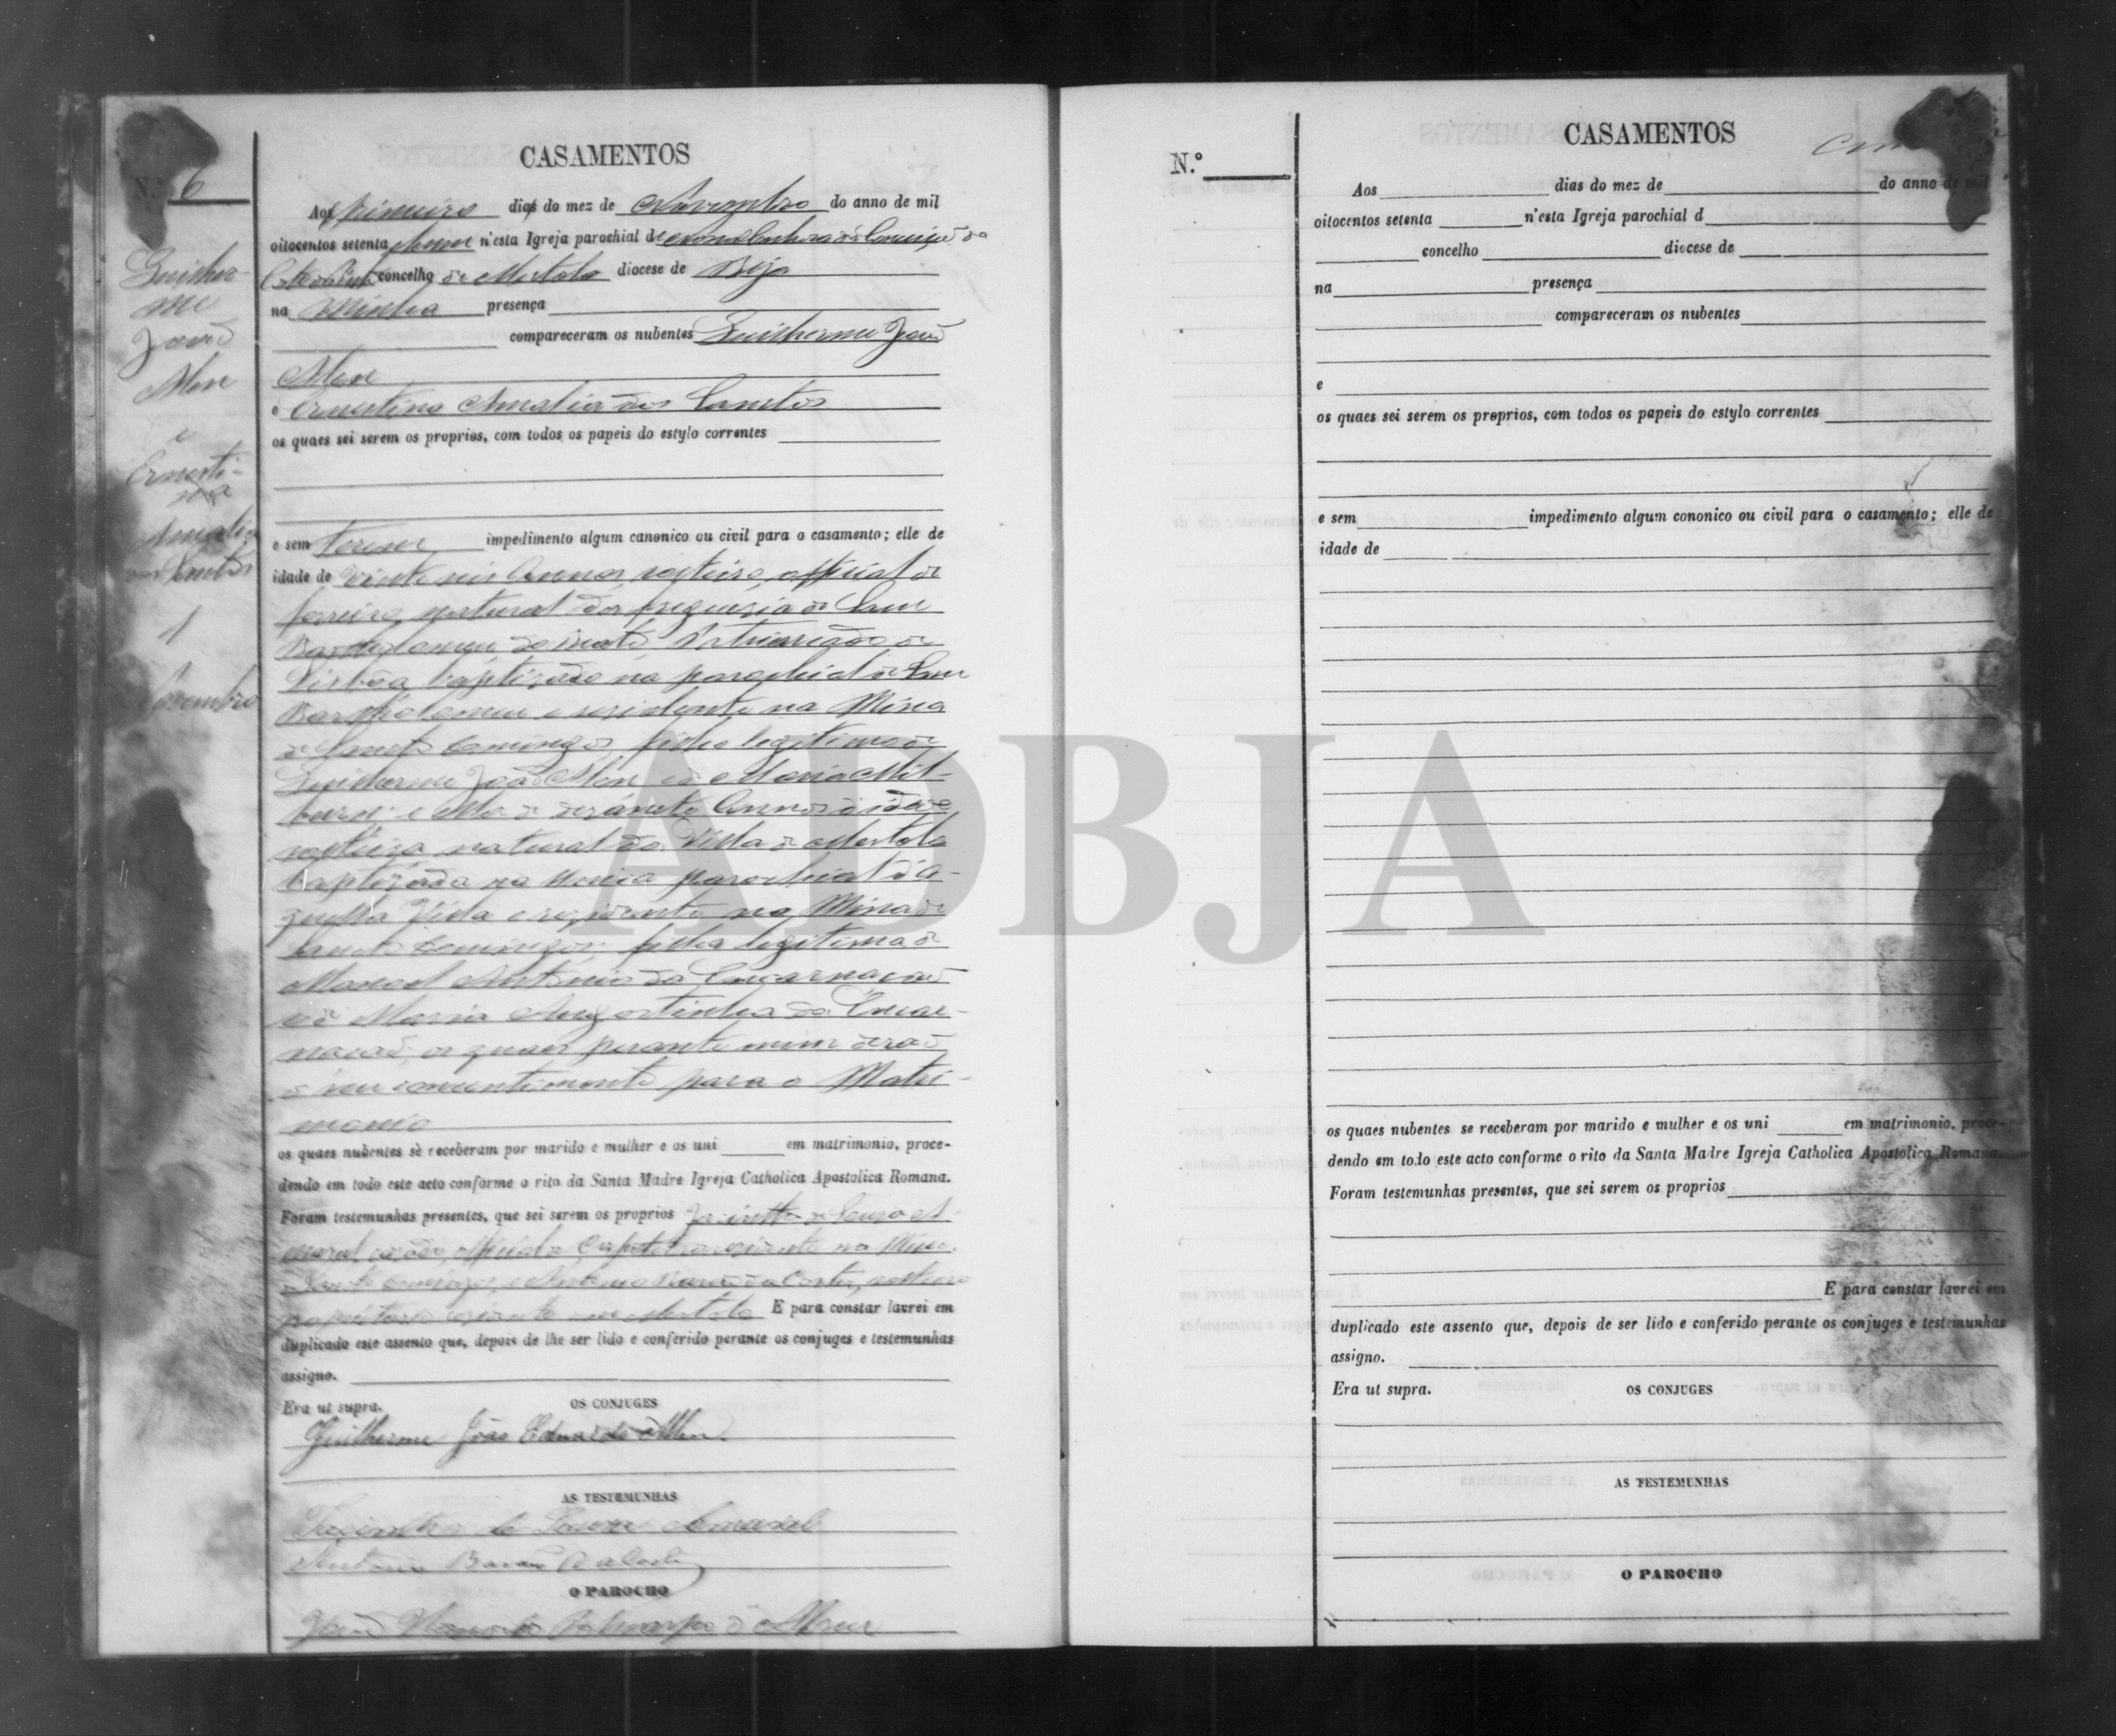 CASAMENTOS
N.º 6
Aos primeiro dias do mez de Novembro do anno de mil
oitocentos setenta e nove n'esta Igreja parochial de Nossa Senhora da Conceição da
concelho de Mertola diocese de Beja
na Minha presença
compareceram os nubentes Guilherme João
Allen
e Ernestina Amalia dos Santos
os quaes sei serem os proprios, com todos os papeis do estylo correntes
e sem terem impedimento algum canonico ou civil para o casamento; elle de
idade de vinte seis Annos solteiro, official de
ferreiro, natural da freguezia de Sam
Bartholomeu do Patriarcado de
Lisboa baptizado na parochial de Sam
Bartholomeu e residente na Mina
de Santo Domingos, filho legitimo de
Guilherme João Allen e de Maria Mil-
burn; e ella de dezasete Annos de idade
solteira natural da Villa de Mertola
baptizada na parochial da-
quella Villa e residente na Mina de
Santo Domingos, filha legitima de
Manoel Antonio da Encarnação
e de Maria Agostinha da Encar-
nação, os quaes perante mim derão
o seu consentimento para o Matri-
monio
os quaes nubentes sè receberam por marido e mulher e os uni em matrimonio, proce-
dendo em todo este acto conforme o rito da Santa Madre Igreja Catholica Apostolica Romana.
Foram testemunhas presentes, que sei serem os proprios Jacintho de Souza A-
maral, casado, residente na Mina
de Santo Domingos, e Antonio Barão da Costa, solteiro
proprietario residente em Mertola E para constar lavrei em
duplicado este assento que, depois de lhe ser lido e conferido perante os conjuges e testemunhas
assigno.
Era ut supra.
OS CONJUGES
Guilherme João Eduardo Allen.
AS TESTEMUNHAS
Jacintho de Souza Amaral
Antonio Barão da Costa
O PAROCHO
João
Guilher-
me
João
Allen
e
Ernesti-
na
Amalia
dos Santos
1
Novembro
CASAMENTOS
N.º
Aos dias do mez de do anno de mil
oitocentos setenta n'esta Igreja parochial d
concelho diocese de
na presença
compareceram os nubentes
e
os quaes sei serem os proprios, com todos os papeis do estylo correntes
e sem impedimento algum cononico ou civil para o casamento; elle de
idade de
os quaes nubentes se receberam por marido e mulher e os uni em matrimonio, proce-
dendo em todo este acto conforme o rito da Santa Madre Igreja Catholica Apostolica Romana.
Foram testemunhas presentes, que sei serem os proprios
E para constar lavrei em
duplicado este assento que, depois de ser lido e conferido perante os conjuges e testemunhas
assigno.
Era ut supra.
OS CONJUGES
AS TESTEMUNHAS
O PAROCHO
ADBJA